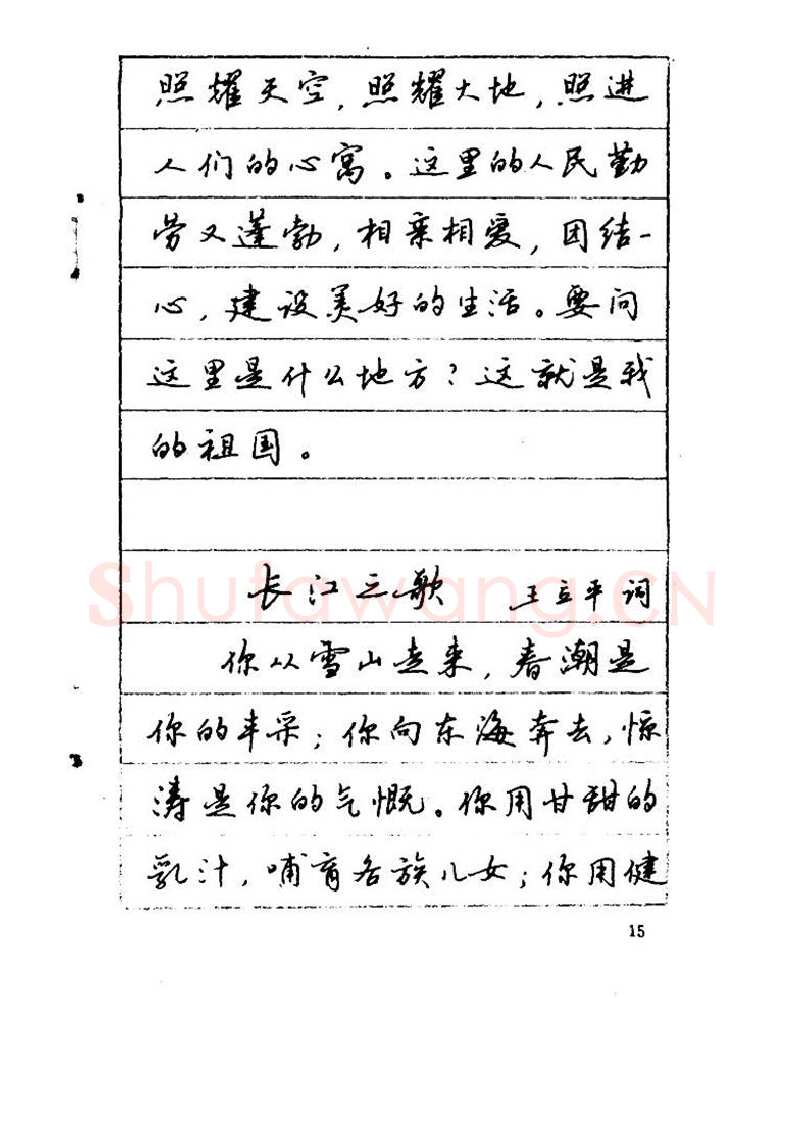 照耀天空，照耀大地，照进
人们的心窝。这里的人民勤
劳又蓬勃，相亲相爱，团结一
心，建设美好的生活。要问
这里是什么地方？这就是我
的祖国。
长江之歌 王立平词
你从雪山走来，春潮是
你的丰采；你向东海奔去，惊
涛是你的气慨。你用甘甜的
乳汁，哺育各族儿女；你用健
15
Shufawang.CN